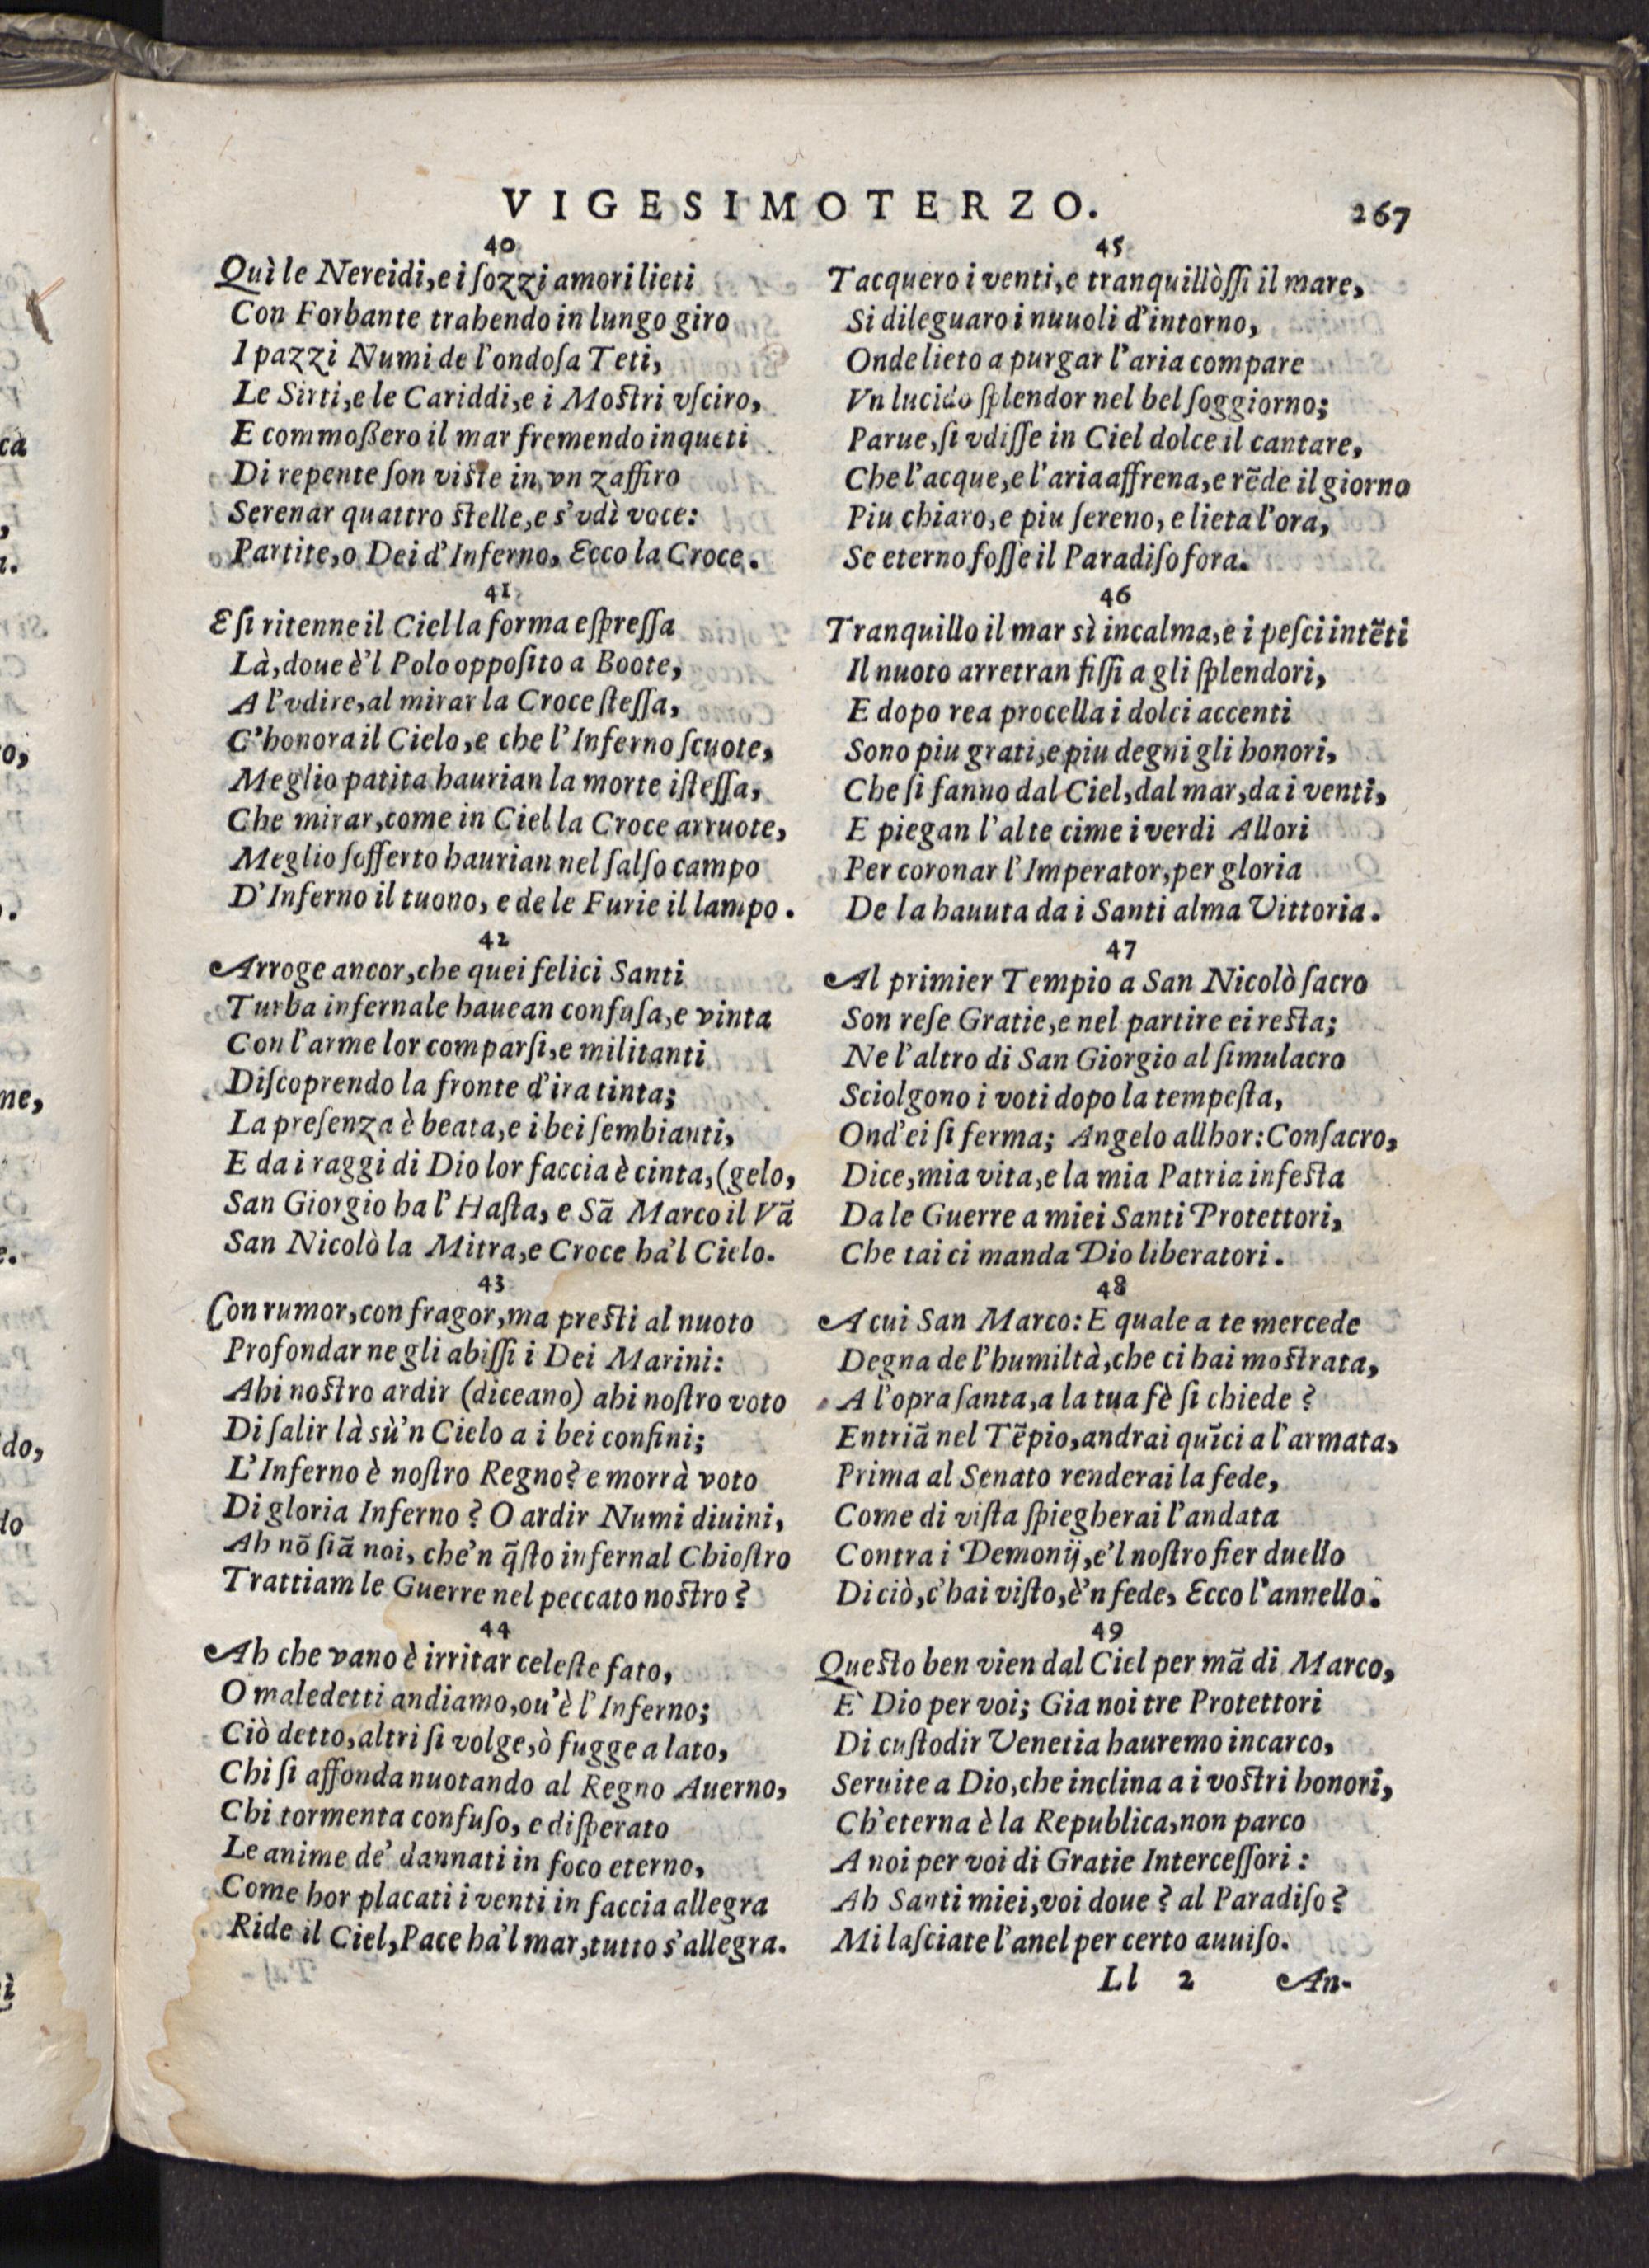 VIGESIMOTERZO.
267
40
Quì le Nereidi, e i ſozzi amori lieti
Con Forbante trahendo in lungo giro
I pazzi Numi de l'ondoſa Teti,
Le Sirti, e le Cariddi, e i Moſtri vſciro,
E commoßero il mar fremendo inqueti
Di repente ſon viſte in vn zaffiro
Serenar quattro ſtelle, e s'vdì voce:
Partite, o Dei d'Inferno, Ecco la Croce.
41
E ſi ritenne il Ciel la forma eſpreſſa
Là, doue è'l Polo oppoſito a Boote,
A l'vdire, al mirar la Croce ſteſſa,
C'honora il Cielo, e che l'Inferno ſcuote,
Meglio patita haurian la morte iſteſſa,
Che mirar, come in Ciel la Croce arruote,
Meglio ſofferto haurian nel ſalſo campo
D'Inferno il tuono, e de le Furie il lampo.
42
Arroge ancor, che quei felici Santi
Turba infernale hauean confuſa, e vinta
Con l'arme lor comparſi, e militanti
Diſcoprendo la fronte d'ira tinta;
La preſenza è beata, e i bei ſembianti,
E da i raggi di Dio lor faccia è cinta, (gelo,
San Giorgio ha l'Haſta, e Sã Marco il Vã
San Nicolò la Mitra, e Croce ha'l Cielo.
43
Con rumor, con fragor, ma preſti al nuoto
Profondar ne gli abiſſi i Dei Marini:
Ahi noſtro ardir (diceano) ahi noſtro voto
Di ſalir là sù'n Cielo a i bei confini;
L'Inferno è noſtro Regno? e morrà voto
Di gloria Inferno? O ardir Numi diuini,
Ah nõ ſiã noi, che'n q̃ſto infernal Chioſtro
Trattiam le Guerre nel peccato noſtro?
44
Ah che vano è irritar celeſte fato,
O maledetti andiamo, ou'è l'Inferno;
Ciò detto, altri ſi volge, ò fugge a lato,
Chi ſi affonda nuotando al Regno Auerno,
Chi tormenta confuſo, e diſperato
Le anime de' dannati in foco eterno,
Come hor placati i venti in faccia allegra
Ride il Ciel, Pace ha'l mar, tutto s'allegra.
45
Tacquero i venti, e tranquillòſſi il mare,
Si dileguaro i nuuoli d'intorno,
Onde lieto a purgar l'aria compare
Vn lucido ſplendor nel bel ſoggiorno;
Parue, ſi vdiſſe in Ciel dolce il cantare,
Che l'acque, e l'aria affrena, e rẽde il giorno
Piu chiaro, e piu ſereno, e lieta l'ora,
Se eterno foſſe il Paradiſo fora.
46
Tranquillo il mar sì incalma, e i peſci intẽti
Il nuoto arretran fiſſi a gli ſplendori,
E dopo rea procella i dolci accenti
Sono piu grati, e piu degni gli honori,
Che ſi fanno dal Ciel, dal mar, da i venti,
E piegan l'alte cime i verdi Allori
Per coronar l'Imperator, per gloria
De la hauuta da i Santi alma Vittoria.
47
Al primier Tempio a San Nicolò ſacro
Son reſe Gratie, e nel partire ei reſta;
Ne l'altro di San Giorgio al ſimulacro
Sciolgono i voti dopo la tempeſta,
Ond'ei ſi ferma; Angelo allhor: Conſacro,
Dice, mia vita, e la mia Patria infeſta
Da le Guerre a miei Santi Protettori,
Che tai ci manda Dio liberatori.
48
A cui San Marco: E quale a te mercede
Degna de l'humiltà, che ci hai moſtrata,
A l'opra ſanta, a la tua fè ſi chiede?
Entriã nel Tẽpio, andrai quĩci a l'armata,
Prima al Senato renderai la fede,
Come di viſta ſpiegherai l'andata
Contra i Demonij, e'l noſtro fier duello
Di ciò, c'hai viſto, è'n fede, Ecco l'annello.
49
Queſto ben vien dal Ciel per mã di Marco,
E` Dio per voi; Gia noi tre Protettori
Di cuſtodir Venetia hauremo incarco,
Seruite a Dio, che inclina a i voſtri honori,
Ch'eterna è la Republica, non parco
A noi per voi di Gratie Interceſſori:
Ah Santi miei, voi doue? al Paradiſo?
Mi laſciate l'anel per certo auuiſo.
Ll 2
An-